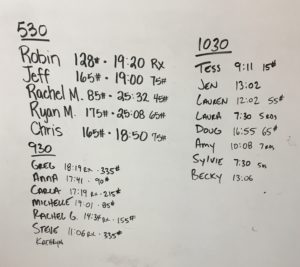 530
Robin 128# · 19:20 Rx
Jeff 165# · 19:00 75#
Rachel M. 85# · 25:32 45#
Ryan M. 175# · 25:08 65#
Chris 165# · 18:50 75#
930
Greg 18:19 Rx · 335#
Anna 17:41 · 90#
Carla 17:19 Rx · 215#
Michelle 19:01 · 85#
Rachel G. 14:34 Rx · 155#
Steve 11:06 Rx · 335#
Kathryn
1030
Tess 9:11 15#
Jen 13:02
Lauren 12:02 55#
Laura 7:30 5 RDS
Doug 16:55 65#
Amy 10:08 7RDS
Sylvie 7:30
Becky 13:06